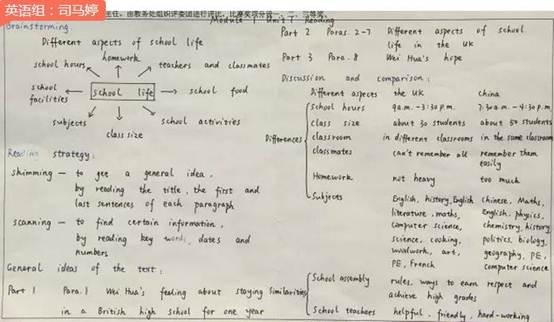 英语组：司马婷
主任。由教务处组织评委团进行评比，比赛奖项分设一、二、三等奖。
Module 1 Unit 1 Reading
Brainstorming
Different aspects of school life
homework
school hours
teachers and classmates
school facilities
school life
school food
subjects
school activities
class size
Reading strategy:
skimming — to get a general idea,
by reading the title, the first and
last sentences of each paragraph
scanning — to find certain information,
by reading key words, dates and
numbers
General ideas of the text:
Part 1 Para. 1 Wei Hua's feeling about staying
in a British high school for one year
Part 2 Paras. 2-7 Different aspects of school
life in the UK
Part 3 Para. 8 Wei Hua's hope
Discussion and comparison:
Different aspects the UK China
Differences
School hours 9 a.m. - 3:30 p.m. 7:30 a.m. - 4:30 p.m.
Class size about 30 students about 50 students
classroom in different classrooms in the same classroom
classmates can't remember all remember them
easily
Homework not heavy too much
Subjects English, history, English Chinese, Maths,
literature, maths, English, physics,
computer science, chemistry, history
science, cooking, politics, biology,
woodwork, art, geography, PE,
PE, French computer science
Similarities
School assembly rules, ways to earn respect and
achieve high grades
School teachers helpful, friendly, hard-working